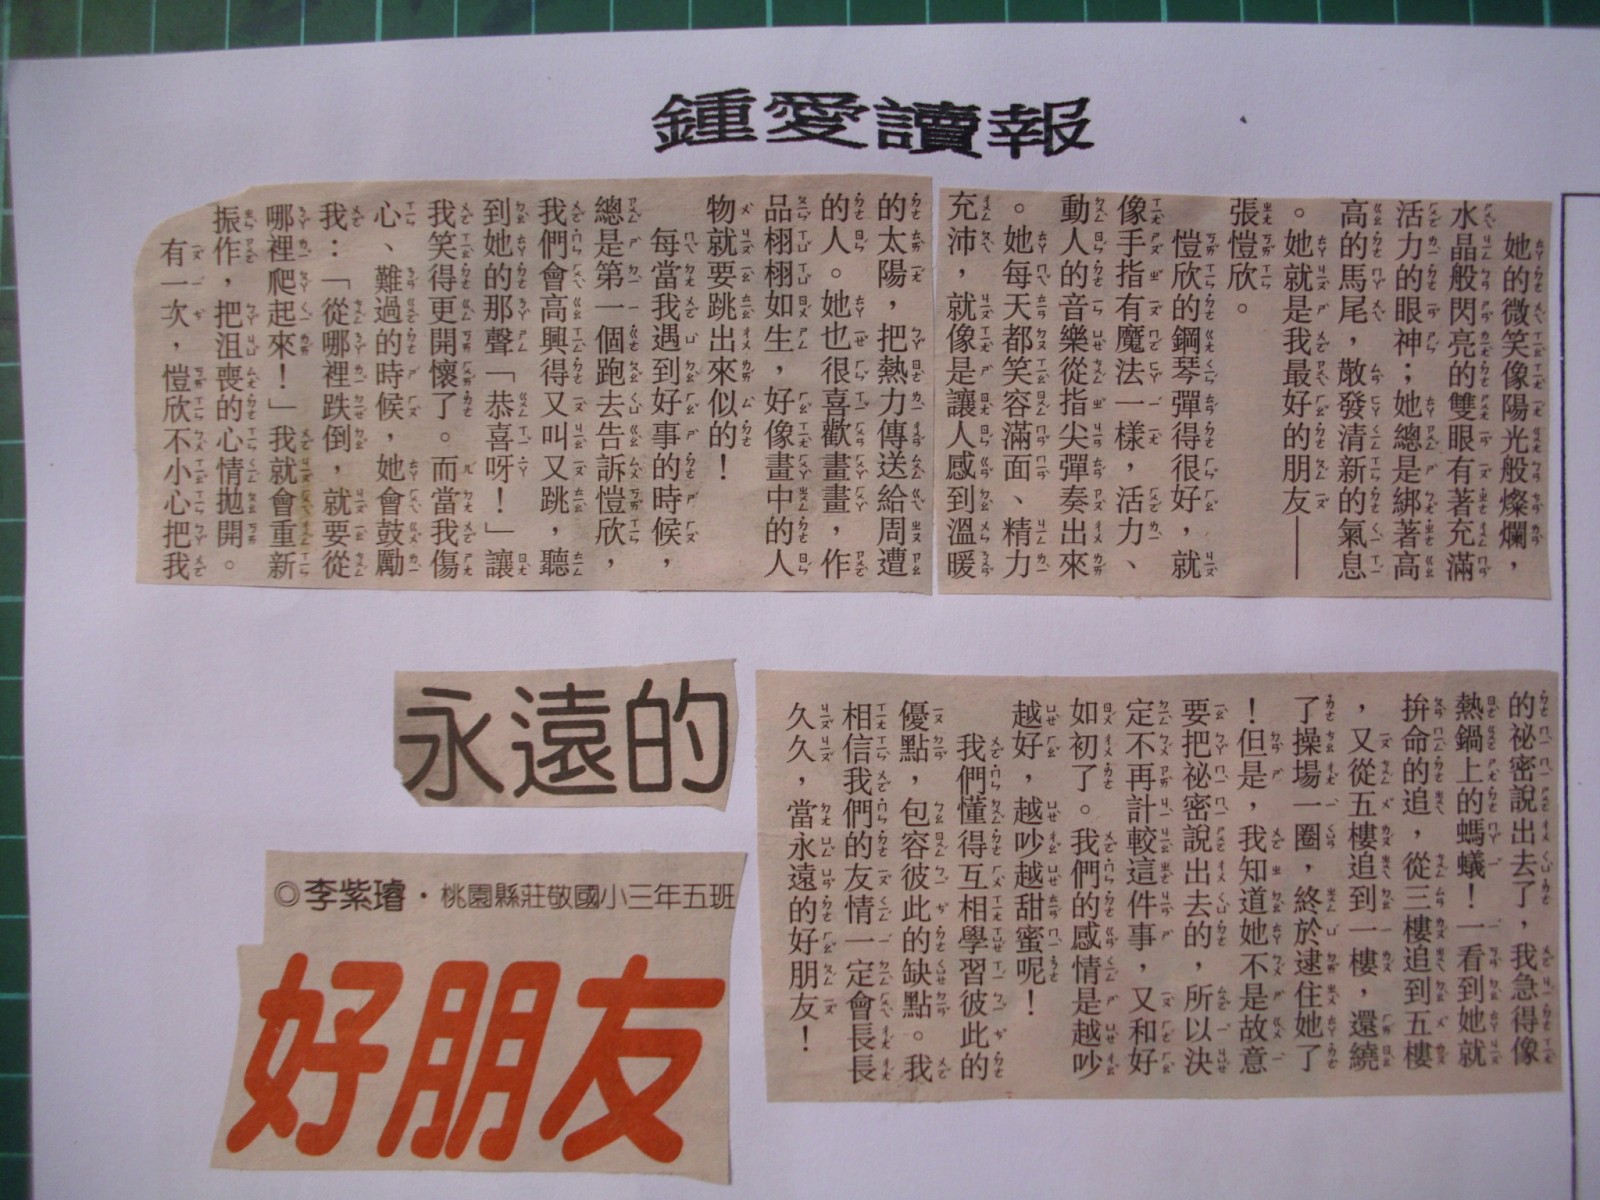 鍾愛讀報
她的微笑像陽光般燦爛，
水晶般閃亮的雙眼有著充滿
活力的眼神；她總是綁著高
高的馬尾，散發清新的氣息
。她就是我最好的朋友——
張愷欣。
愷欣的鋼琴彈得很好，就
像手指有魔法一樣，活力、
動人的音樂從指尖彈奏出來
。她每天都笑容滿面、精力
充沛，就像是讓人感到溫暖
的太陽，把熱力傳送給周遭
的人。她也很喜歡畫畫，作
品栩栩如生，好像畫中的人
物就要跳出來似的！
每當我遇到好事的時候，
總是第一個跑去告訴愷欣，
我們會高興得又叫又跳，聽
到她的那聲「恭喜呀！」讓
我笑得更開懷了。而當我傷
心、難過的時候，她會鼓勵
我：「從哪裡跌倒，就要從
哪裡爬起來！」我就會重新
振作，把沮喪的心情拋開。
有一次，愷欣不小心把我
的祕密說出去了，我急得像
熱鍋上的螞蟻！一看到她就
拚命的追，從三樓追到五樓
，又從五樓追到一樓，還繞
了操場一圈，終於逮住她了
！但是，我知道她不是故意
要把祕密說出去的，所以決
定不再計較這件事，又和好
如初了。我們的感情是越吵
越好，越吵越甜蜜呢！
我們懂得互相學習彼此的
優點，包容彼此的缺點。我
相信我們的友情一定會長長
久久，當永遠的好朋友！
永遠的
◎李紫璿・桃園縣莊敬國小三年五班
好朋友